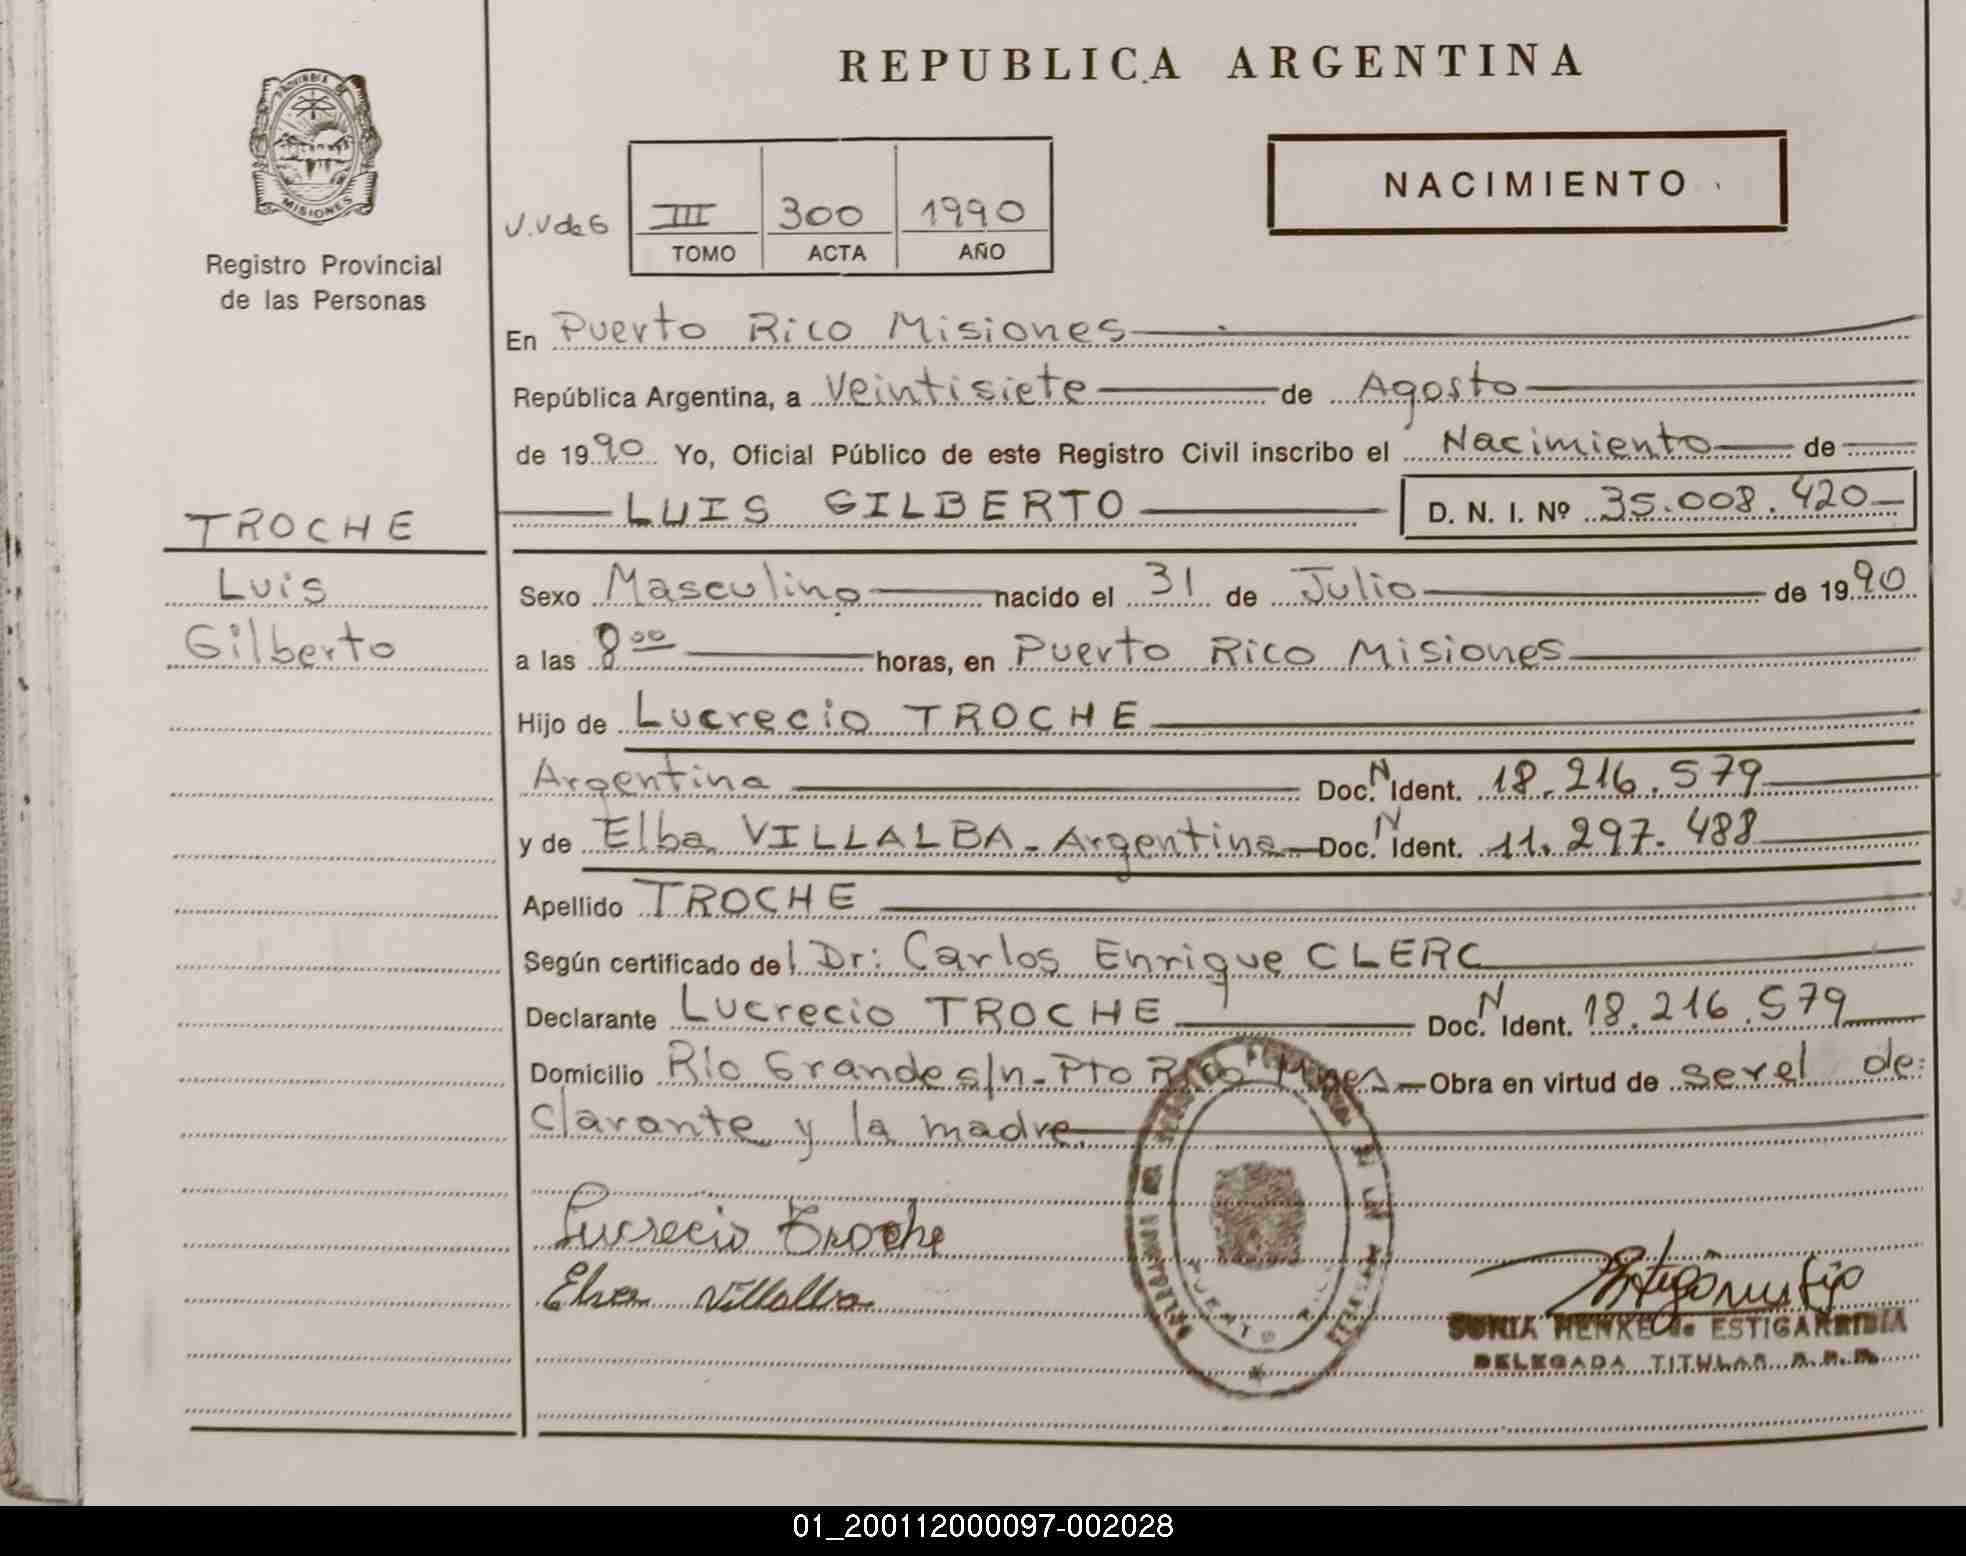 REPUBLICA ARGENTINA
PROVINCIA
MISIONES
Registro Provincial
de las Personas
NACIMIENTO
III 300 1990
TOMO ACTA AÑO
En Puerto Rico Misiones
República Argentina, a Veintisiete de Agosto
de 1990 Yo, Oficial Público de este Registro Civil inscribo el Nacimiento de
LUIS GILBERTO D. N. I. Nº 35.008.420
TROCHE
Luis
Gilberto
Sexo Masculino nacido el 31 de Julio de 1990
a las 8 00 horas, en Puerto Rico Misiones
Hijo de Lucrecio TROCHE
Argentina Doc. N Ident. 18.216.579
y de Elba VILLALBA - Argentina Doc. N Ident. 11.297.488
Apellido TROCHE
Según certificado del Dr: Carlos Enrique CLERC
Declarante Lucrecio TROCHE Doc. N Ident. 18.216.579
Domicilio Río Grande s/n - Pto Rico Mnes Obra en virtud de ser el de-
clarante y la madre.
Lucrecio Troche
Elva Villalba
SONIA HENKE de ESTIGARRIBIA
DELEGADA TITULAR R.P.P.
01_200112000097-002028